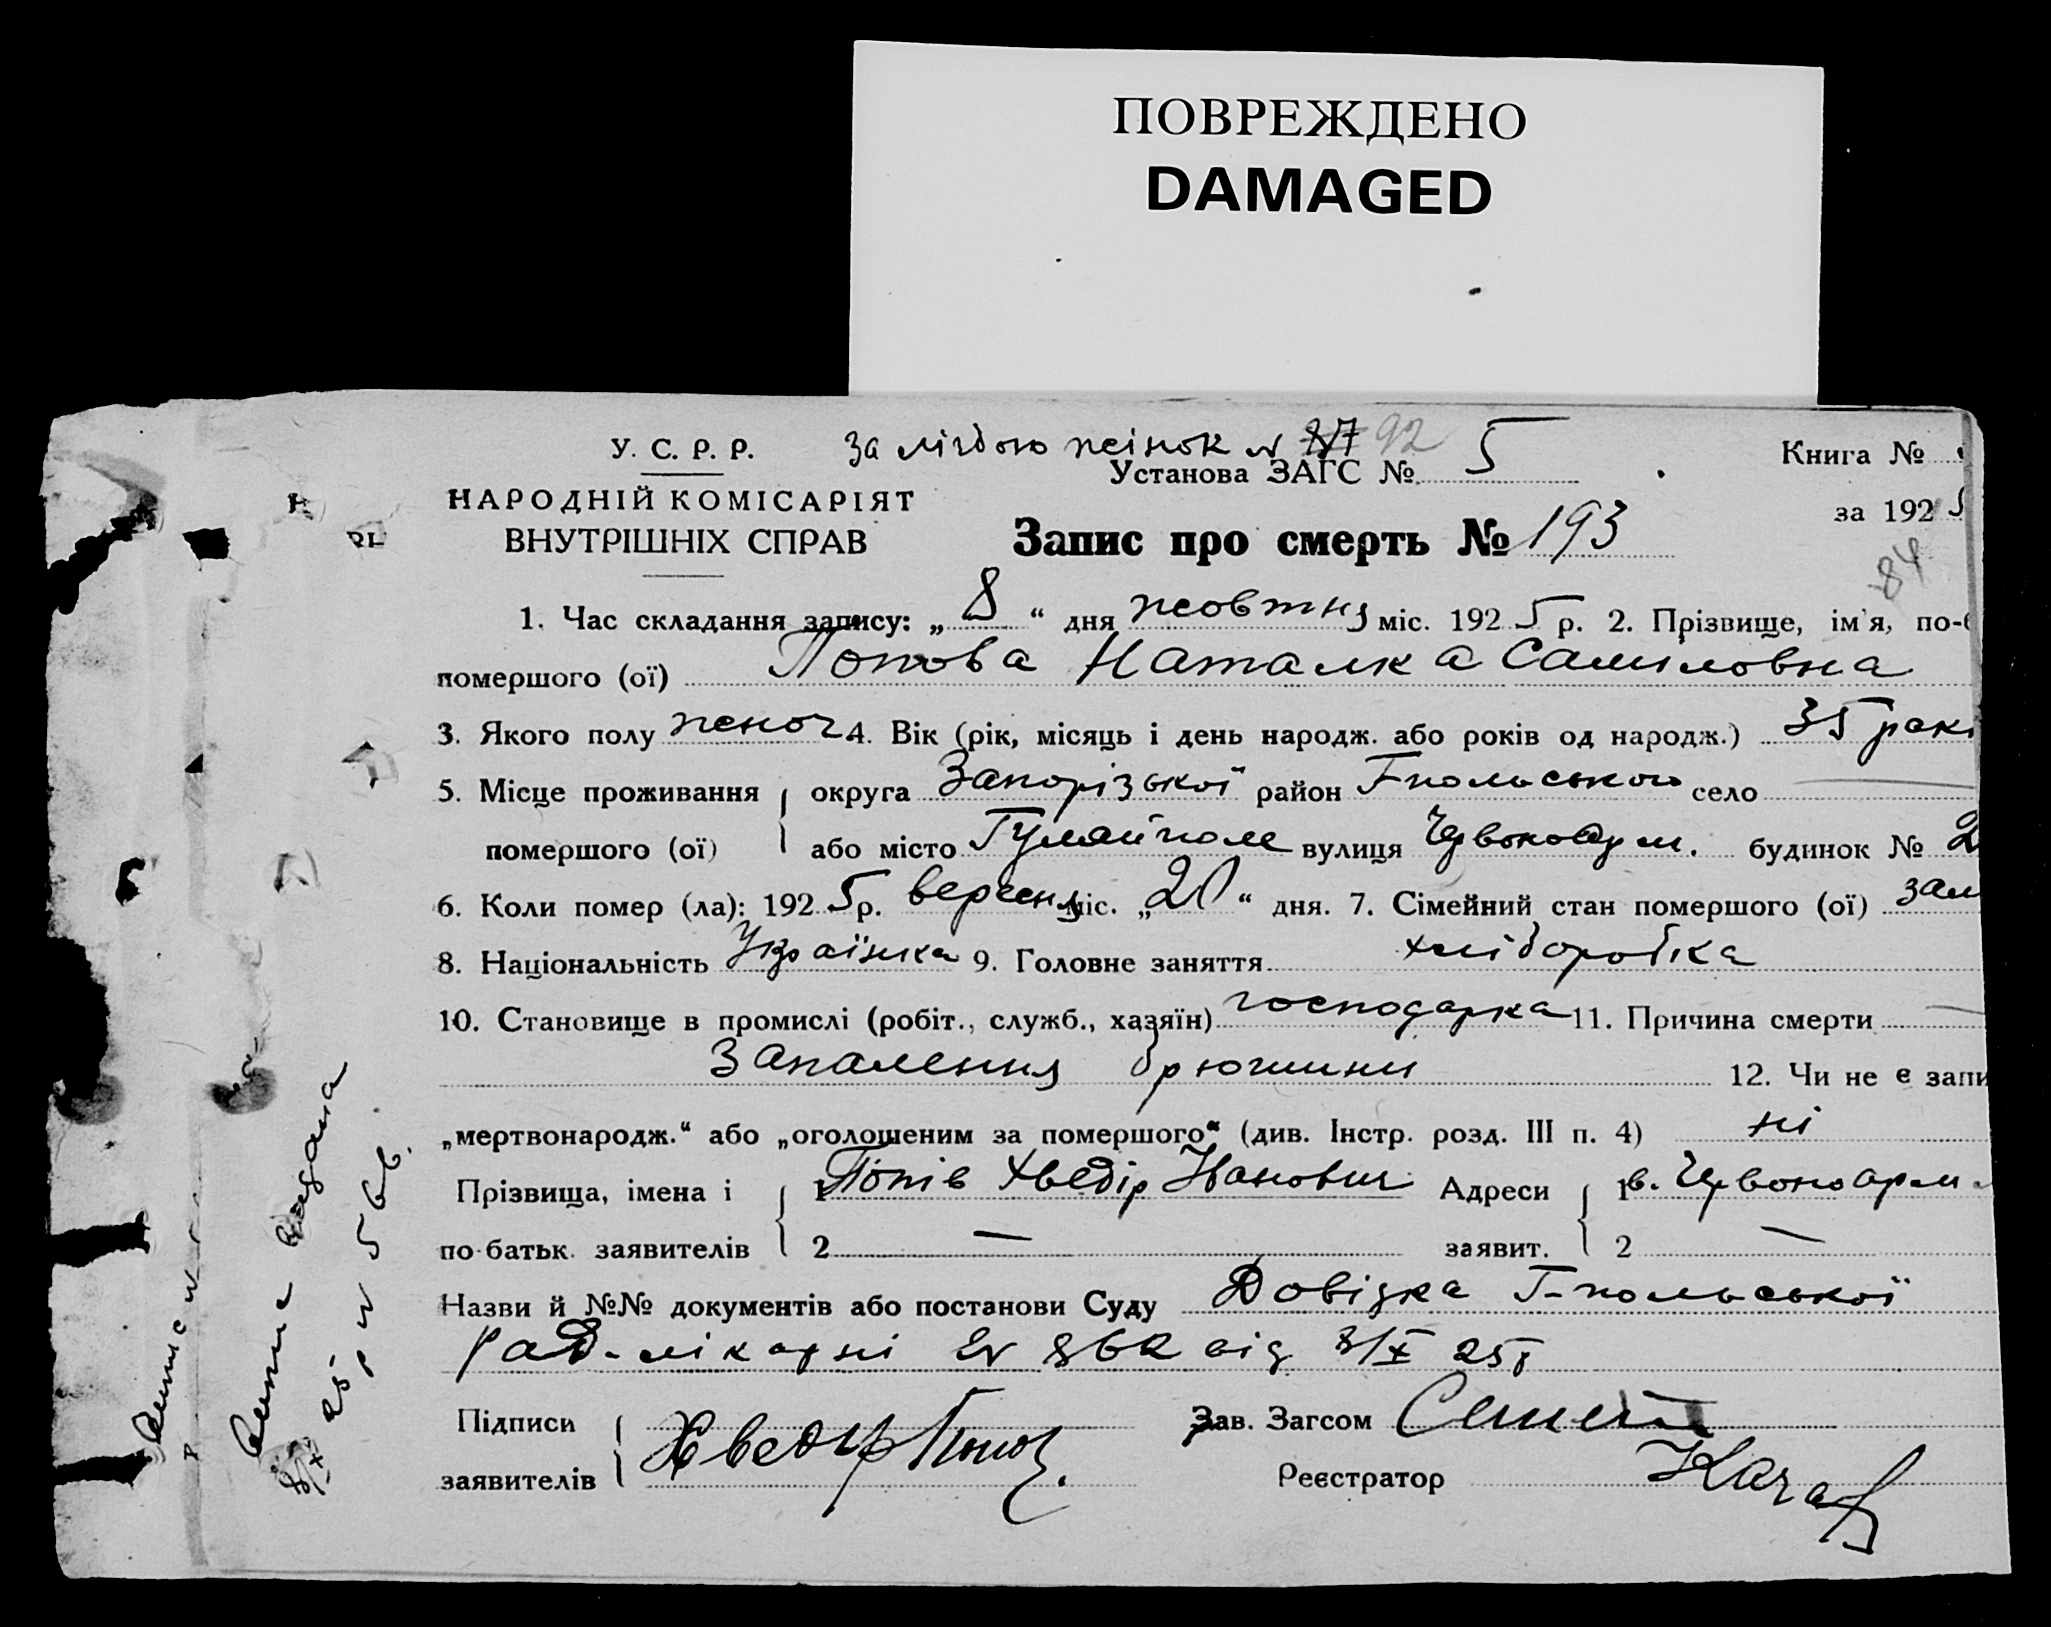 ПОВРЕЖДЕНО
DAMAGED
У. С. Р. Р.
за лічбою жінок N 87 92
Установа ЗАГС № 5
Книга №
НАРОДНІЙ КОМІСАРІЯТ
ВНУТРІШНІХ СПРАВ
за 1925
Запис про смерть № 193
84
1. Час складання запису: „ 8 “ дня жовтня міс. 1925 р. 2. Прізвище, ім'я, по-б
помершого (ої) Попова Наталка Самiловна
3. Якого полу жіноч 4. Вік (рік, місяць і день народж. або років од народж.) 35 рокі
5. Місце проживання округа Запорізької район Г-польського село —
помершого (ої) або місто Гуляйполе вулиця Червоноарм. будинок № 2
6. Коли помер (ла): 1925 р. вересня міс. „ 20 “ дня. 7. Сімейний стан помершого (ої) зам
8. Національність Українка 9. Головне заняття хліборобка
10. Становище в промислі (робіт., служб., хазяїн) господарка 11. Причина смерти —
Запалення брюшини 12. Чи не є запи
„мертвонародж.“ або „оголошеним за помершого“ (див. Інстр. розд. III п. 4) ні
Прізвища, імена і 1 Попів Хведір Іванович Адреси 1 в. Червоноарм
по-батьк. заявителів 2 — заявит. 2 —
Назви й №№ документів або постанови Суду Довідка Г-польської
рад-лікарні N 862 від 8/X 25 р
Підписи Хведир Попов. Зав. Загсом
заявителів Реєстратор
Випис N
Випис видана
8/X 25 р N 566.